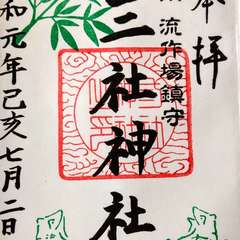 奉拝
流作場鎮守
三社神社
和元年己亥七月二日